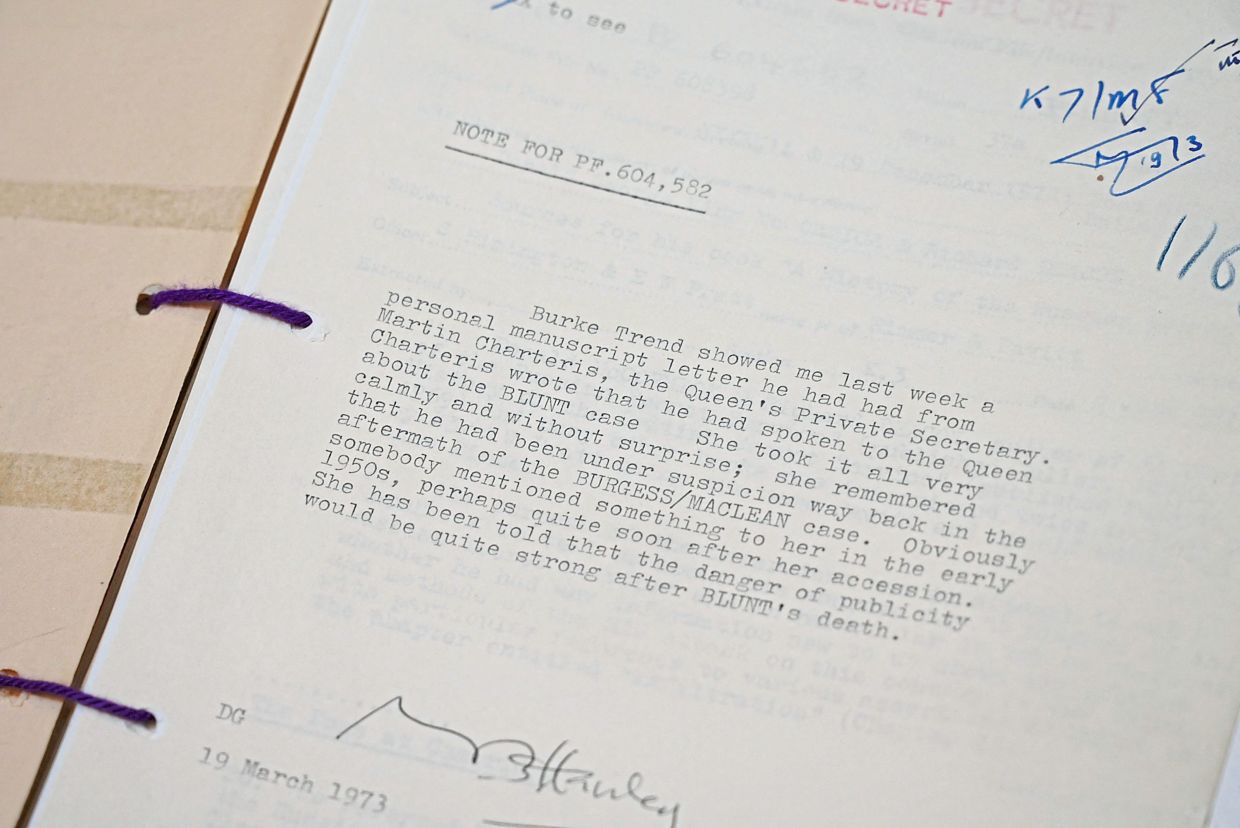 SECRET
to see
NOTE FOR PF.604,582
Burke Trend showed me last week a
personal manuscript letter he had had from
Martin Charteris, the Queen's Private Secretary.
Charteris wrote that he had spoken to the Queen
about the BLUNT case She took it all very
calmly and without surprise; she remembered
that he had been under suspicion way back in the
aftermath of the BURGESS/MACLEAN case. Obviously
somebody mentioned something to her in the early
1950s, perhaps quite soon after her accession.
She has been told that the danger of publicity
would be quite strong after BLUNT's death.
DG
Hanley
19 March 1973